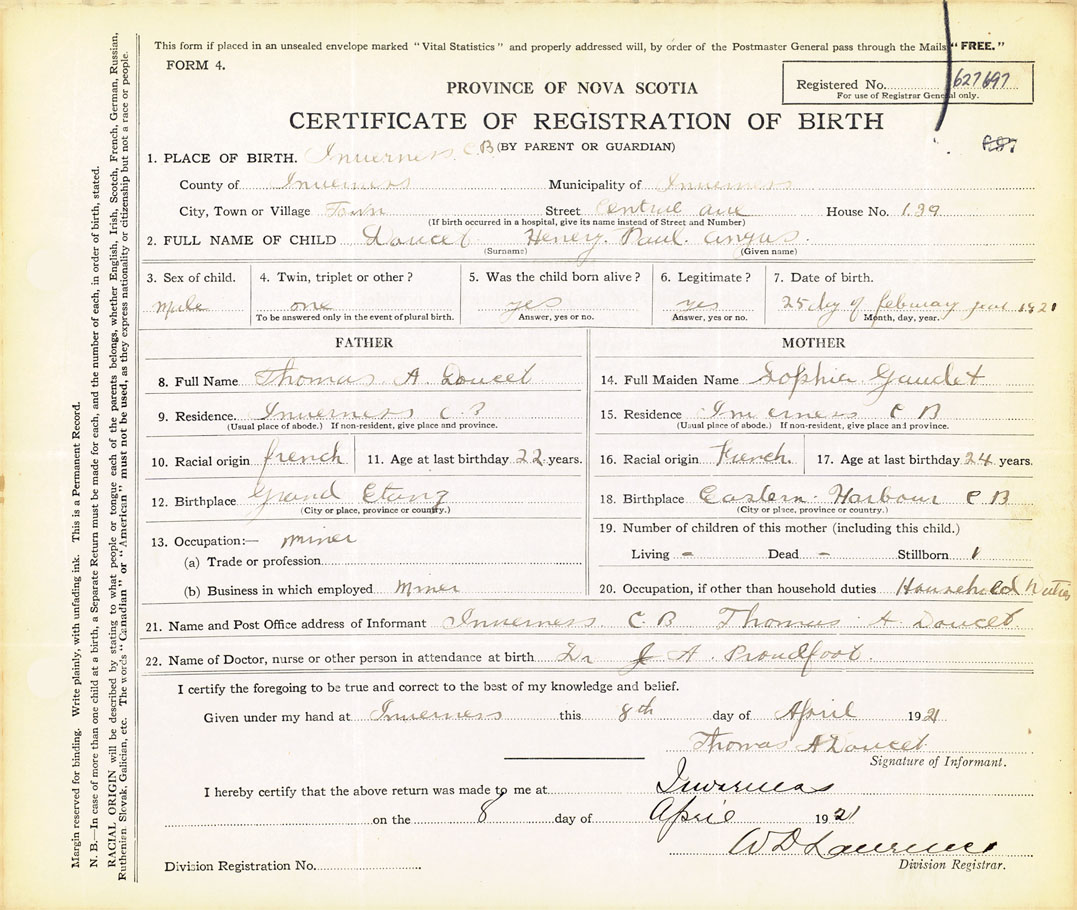 This form if placed in an unsealed envelope marked "Vital Statistics" and properly addressed will, by order of the Postmaster General pass through the Mails "FREE."
FORM 4.
Registered No. 627697
For use of Registrar General only.
PROVINCE OF NOVA SCOTIA
CERTIFICATE OF REGISTRATION OF BIRTH
(BY PARENT OR GUARDIAN)
1. PLACE OF BIRTH. Inverness C B
County of Inverness Municipality of Inverness
City, Town or Village Town Street Central ave House No. 139
(If birth occurred in a hospital, give its name instead of Street and Number)
2. FULL NAME OF CHILD Doucet Henery Paul angus.
(Surname) (Given name)
3. Sex of child. 4. Twin, triplet or other? 5. Was the child born alive? 6. Legitimate? 7. Date of birth.
Male one yes yes 25 day of feburay year 1921
To be answered only in the event of plural birth. Answer, yes or no. Answer, yes or no. Month, day, year.
FATHER MOTHER
8. Full Name Thomas A Doucet 14. Full Maiden Name Sophie Gaudet
9. Residence. Inverness C B 15. Residence Inverness C B
(Usual place of abode.) If non-resident, give place and province. (Usual place of abode.) If non-resident, give place and province.
10. Racial origin french 11. Age at last birthday 22 years. 16. Racial origin French 17. Age at last birthday 24 years.
12. Birthplace Grand Etang 18. Birthplace Eastern Harbour C B
(City or place, province or country.) (City or place, province or country.)
13. Occupation:— miner 19. Number of children of this mother (including this child.)
(a) Trade or profession Living - Dead - Stillborn 1
(b) Business in which employed Miner 20. Occupation, if other than household duties Household Duties
21. Name and Post Office address of Informant Inverness C B Thomas A Doucet
22. Name of Doctor, nurse or other person in attendance at birth Dr J A Proudfoot
I certify the foregoing to be true and correct to the best of my knowledge and belief.
Given under my hand at Inverness this 8th day of April 1921
Thomas A Doucet
Signature of Informant.
I hereby certify that the above return was made to me at Inverness
on the 8 day of April 1921
W D Lawrence
Division Registrar.
Division Registration No.
Margin reserved for binding. Write plainly, with unfading ink. This is a Permanent Record.
N. B.—In case of more than one child at a birth, a Separate Return must be made for each, and the number of each, in order of birth, stated.
RACIAL ORIGIN will be described by stating to what people or tongue each of the parents belongs, whether English, Irish, Scotch, French, German, Russian,
Ruthenian, Slovak, Galician, etc. The words "Canadian" or "American" must not be used, as they express nationality or citizenship but not a race or people.